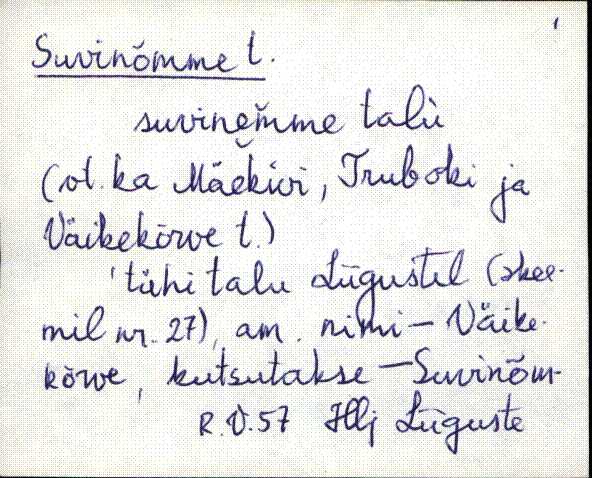 Suvinõmme t.
suvinemme talù
(vt. ka Mäekivi, Truboki ja
Väikekõrve t.)
tühi talu Lügustel (skee-
mil nr. 27), am. nimi – Väike-
kõrve, kutsutakse – Suvinõm-
R.V.57 Hlj Lüguste